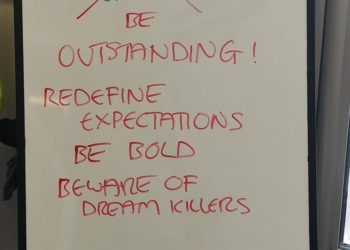 BE
OUTSTANDING!
REDEFINE
EXPECTATIONS
BE BOLD
BEWARE OF
DREAM KILLERS